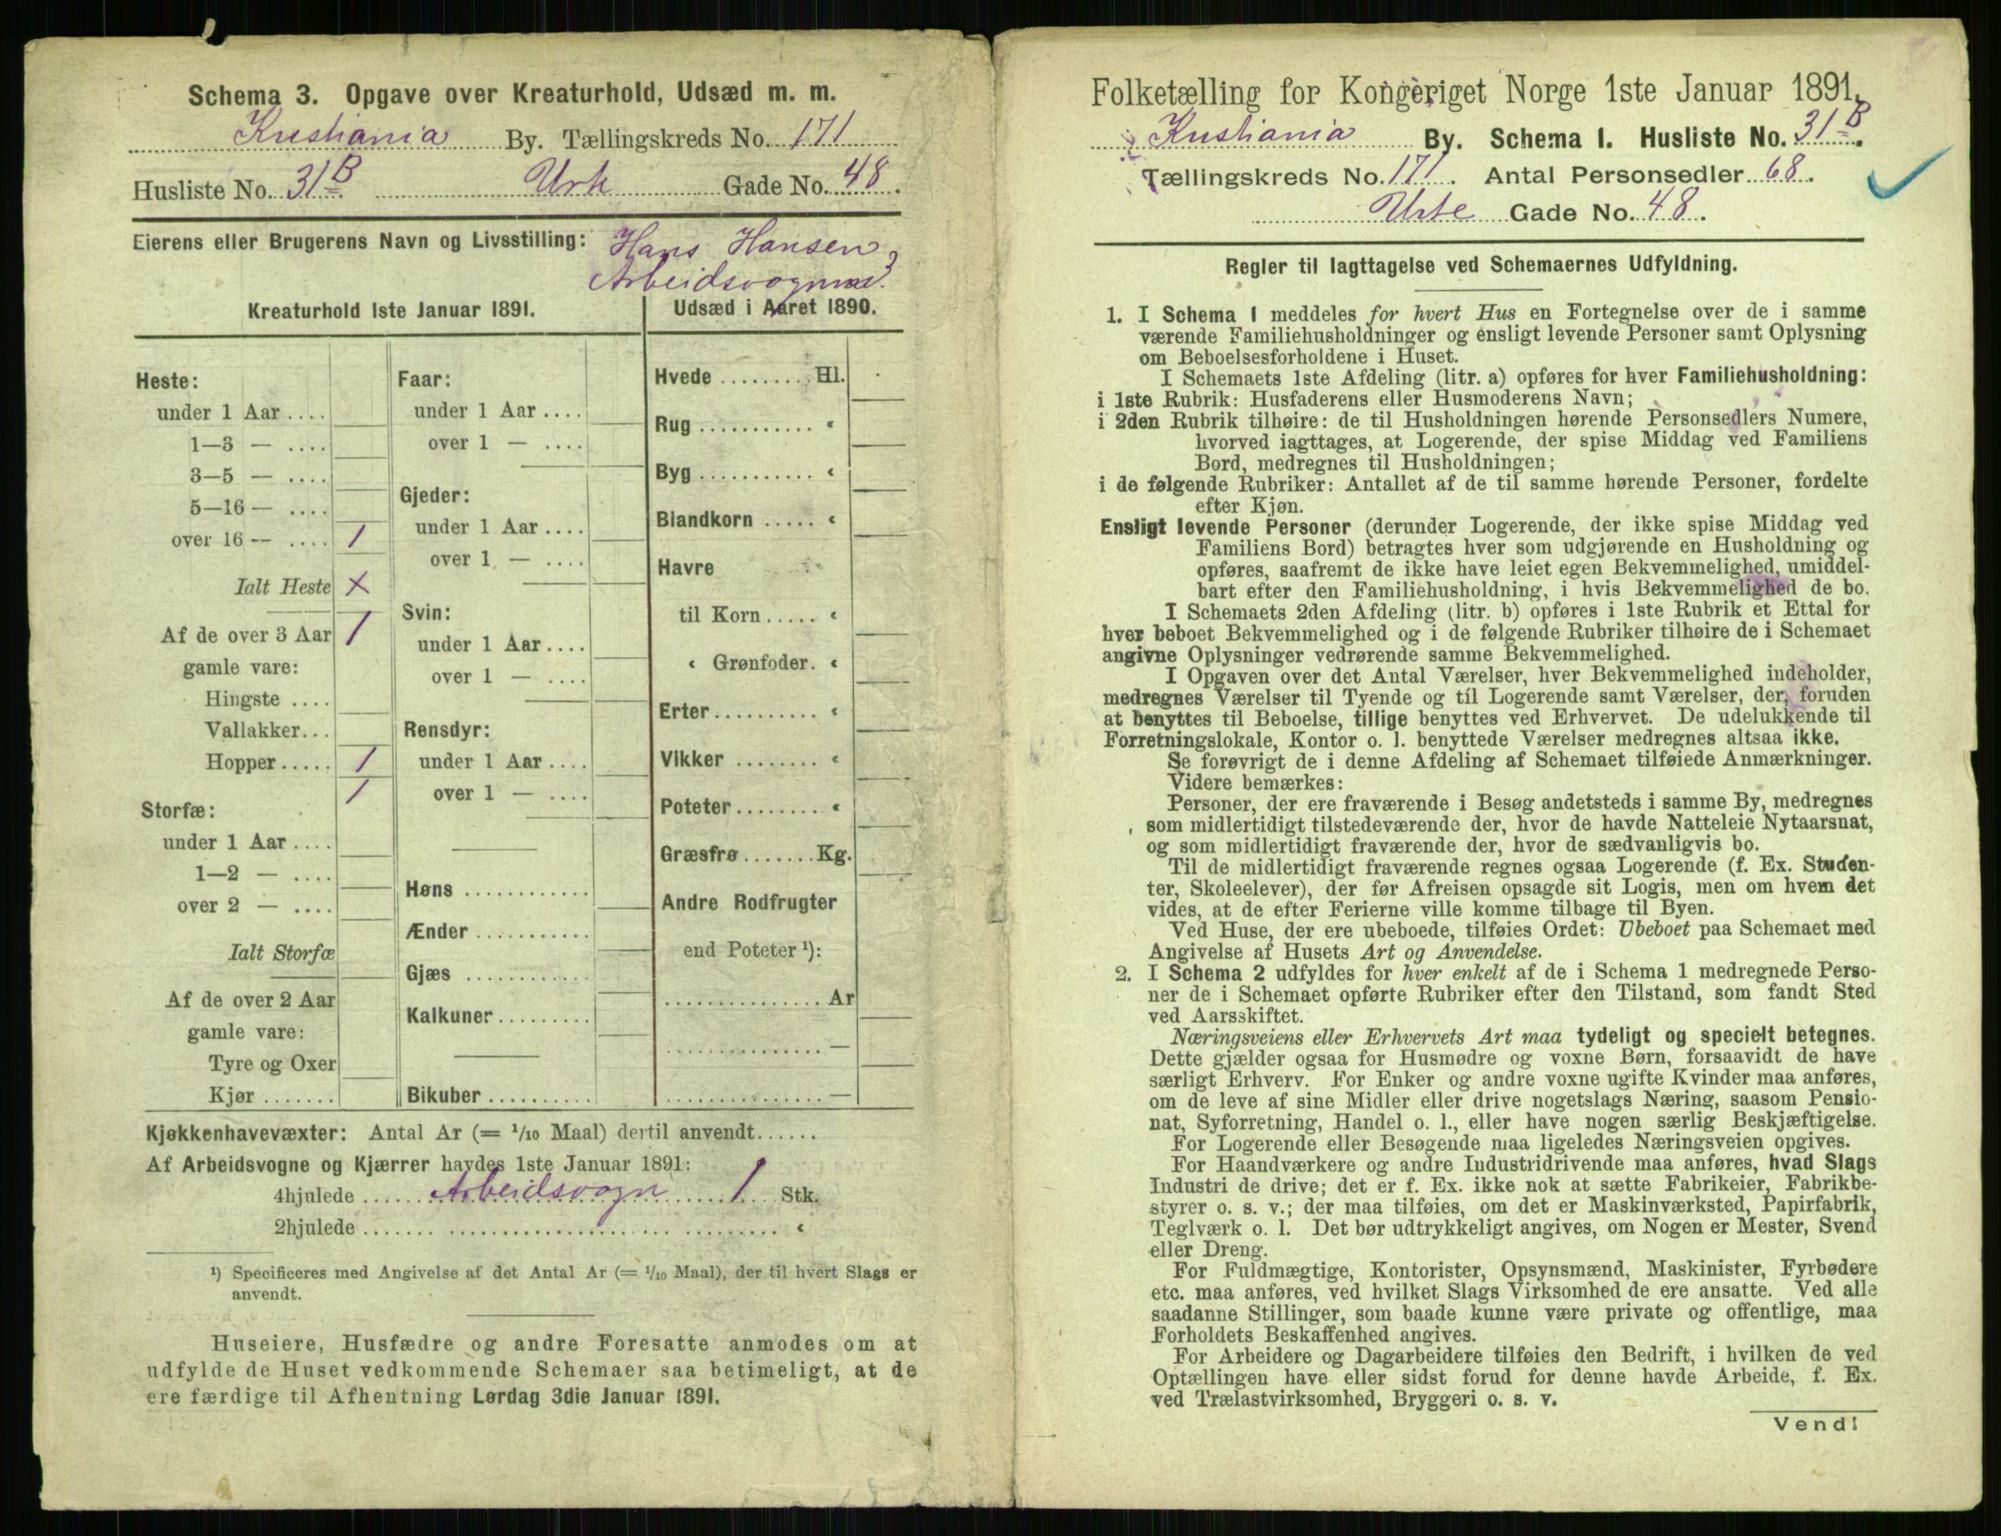 Schema 3. Opgave over Kreaturhold, Udsæd m. m.
Kristiania By. Tællingskreds No. 171
Husliste No. 31 B Urte Gade No. 48.
Eierens eller Brugerens Navn og Livsstilling: Hans Hansen
Arbeidsvognm.
Kreaturhold 1ste Januar 1891.
Heste:
under 1 Aar ....
1—3 — ....
3—5 — ....
5—16 — ....
over 16 — .... 1
Ialt Heste X
Af de over 3 Aar 1
gamle vare:
Hingste ....
Vallakker...
Hopper ..... 1
1
Storfæ:
under 1 Aar ....
1—2 — ....
over 2 — ....
Ialt Storfæ
Af de over 2 Aar
gamle vare:
Tyre og Oxer
Kjør .......
Faar:
under 1 Aar ....
over 1 — ....
Gjeder:
under 1 Aar ....
over 1 — ....
Svin:
under 1 Aar ....
over 1 — ....
Rensdyr:
under 1 Aar ....
over 1 — ....
Høns ............
Ænder ...........
Gjæs ............
Kalkuner.........
Bikuber ..........
Udsæd i Aaret 1890.
Hvede ......... Hl.
Rug ........... «
Byg ........... «
Blandkorn ..... «
Havre
til Korn ..... «
« Grønfoder. «
Erter .......... «
Vikker ........ «
Poteter ........ «
Græsfrø ....... Kg.
Andre Rodfrugter
end Poteter ¹):
............... Ar
............... —
............... —
Kjøkkenhavevæxter: Antal Ar (= 1/10 Maal) dertil anvendt......
Af Arbeidsvogne og Kjærrer havdes 1ste Januar 1891:
4hjulede ...... Arbeidsvogn 1 Stk.
2hjulede ...... «
¹) Specificeres med Angivelse af det Antal Ar (= 1/10 Maal), der til hvert Slags er
anvendt.
Huseiere, Husfædre og andre Foresatte anmodes om at
udfylde de Huset vedkommende Schemaer saa betimeligt, at de
ere færdige til Afhentning Lørdag 3die Januar 1891.
Folketælling for Kongeriget Norge 1ste Januar 1891.
Kristiania By. Schema 1. Husliste No. 31 B.
Tællingskreds No. 171. Antal Personsedler 68.
Urte Gade No. 48.
Regler til Iagttagelse ved Schemaernes Udfyldning.
1. I Schema 1 meddeles for hvert Hus en Fortegnelse over de i samme
værende Familiehusholdninger og ensligt levende Personer samt Oplysning
om Beboelsesforholdene i Huset.
I Schemaets 1ste Afdeling (litr. a) opføres for hver Familiehusholdning:
i 1ste Rubrik: Husfaderens eller Husmoderens Navn;
i 2den Rubrik tilhøire: de til Husholdningen hørende Personsedlers Numere,
hvorved iagttages, at Logerende, der spise Middag ved Familiens
Bord, medregnes til Husholdningen;
i de følgende Rubriker: Antallet af de til samme hørende Personer, fordelte
efter Kjøn.
Ensligt levende Personer (derunder Logerende, der ikke spise Middag ved
Familiens Bord) betragtes hver som udgjørende en Husholdning og
opføres, saafremt de ikke have leiet egen Bekvemmelighed, umiddel-
bart efter den Familiehusholdning, i hvis Bekvemmelighed de bo.
I Schemaets 2den Afdeling (litr. b) opføres i 1ste Rubrik et Ettal for
hver beboet Bekvemmelighed og i de følgende Rubriker tilhøire de i Schemaet
angivne Oplysninger vedrørende samme Bekvemmelighed.
I Opgaven over det Antal Værelser, hver Bekvemmelighed indeholder,
medregnes Værelser til Tyende og til Logerende samt Værelser, der, foruden
at benyttes til Beboelse, tillige benyttes ved Erhvervet. De udelukkende til
Forretningslokale, Kontor o. l. benyttede Værelser medregnes altsaa ikke.
Se forøvrigt de i denne Afdeling af Schemaet tilføiede Anmærkninger.
Videre bemærkes:
Personer, der ere fraværende i Besøg andetsteds i samme By, medregnes
som midlertidigt tilstedeværende der, hvor de havde Natteleie Nytaarsnat,
og som midlertidigt fraværende der, hvor de sædvanligvis bo.
Til de midlertidigt fraværende regnes ogsaa Logerende (f. Ex. Studen-
ter, Skoleelever), der før Afreisen opsagde sit Logis, men om hvem det
vides, at de efter Ferierne ville komme tilbage til Byen.
Ved Huse, der ere ubeboede, tilføies Ordet: Ubeboet paa Schemaet med
Angivelse af Husets Art og Anvendelse.
2. I Schema 2 udfyldes for hver enkelt af de i Schema 1 medregnede Perso-
ner de i Schemaet opførte Rubriker efter den Tilstand, som fandt Sted
ved Aarsskiftet.
Næringsveiens eller Erhvervets Art maa tydeligt og specielt betegnes.
Dette gjælder ogsaa for Husmødre og voxne Børn, forsaavidt de have
særligt Erhverv. For Enker og andre voxne ugifte Kvinder maa anføres,
om de leve af sine Midler eller drive nogetslags Næring, saasom Pensio-
nat, Syforretning, Handel o. l., eller have nogen særlig Beskjæftigelse.
For Logerende eller Besøgende maa ligeledes Næringsveien opgives.
For Haandværkere og andre Industridrivende maa anføres, hvad Slags
Industri de drive; det er f. Ex. ikke nok at sætte Fabrikeier, Fabrikbe-
styrer o. s. v.; der maa tilføies, om det er Maskinværksted, Papirfabrik,
Teglværk o. l. Det bør udtrykkeligt angives, om Nogen er Mester, Svend
eller Dreng.
For Fuldmægtige, Kontorister, Opsynsmænd, Maskinister, Fyrbødere
etc. maa anføres, ved hvilket Slags Virksomhed de ere ansatte. Ved alle
saadanne Stillinger, som baade kunne være private og offentlige, maa
Forholdets Beskaffenhed angives.
For Arbeidere og Dagarbeidere tilføies den Bedrift, i hvilken de ved
Optællingen have eller sidst forud for denne havde Arbeide, f. Ex.
ved Trælastvirksomhed, Bryggeri o. s. v.
Vend!